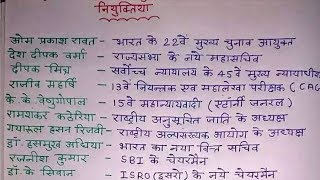 नियुक्तियाँ
ओम प्रकाश रावत - भारत के 22वें मुख्य चुनाव आयुक्त
देश दीपक वर्मा - राज्यसभा के नये महासचिव
दीपक मिश्र - सर्वोच्च न्यायालय के 45वें मुख्य न्यायाधीश
राजीव महर्षि - 13वें नियन्त्रक एवं महालेखा परीक्षक (CAG
के. के. वेणुगोपाल - 15वें महान्यायवादी (एटॉर्नी जनरल)
रामशंकर कठेरिया - राष्ट्रीय अनुसूचित जाति के अध्यक्ष
गयारूल हसन रिजवी - राष्ट्रीय अल्पसंख्यक आयोग के अध्यक्ष
डॉ. हसमुख अधिया - भारत का नया वित्त सचिव
रजनीश कुमार - SBI के चेयरमैन
डॉ. के सिवान - ISRO (इसरो) के नये चेयरमैन